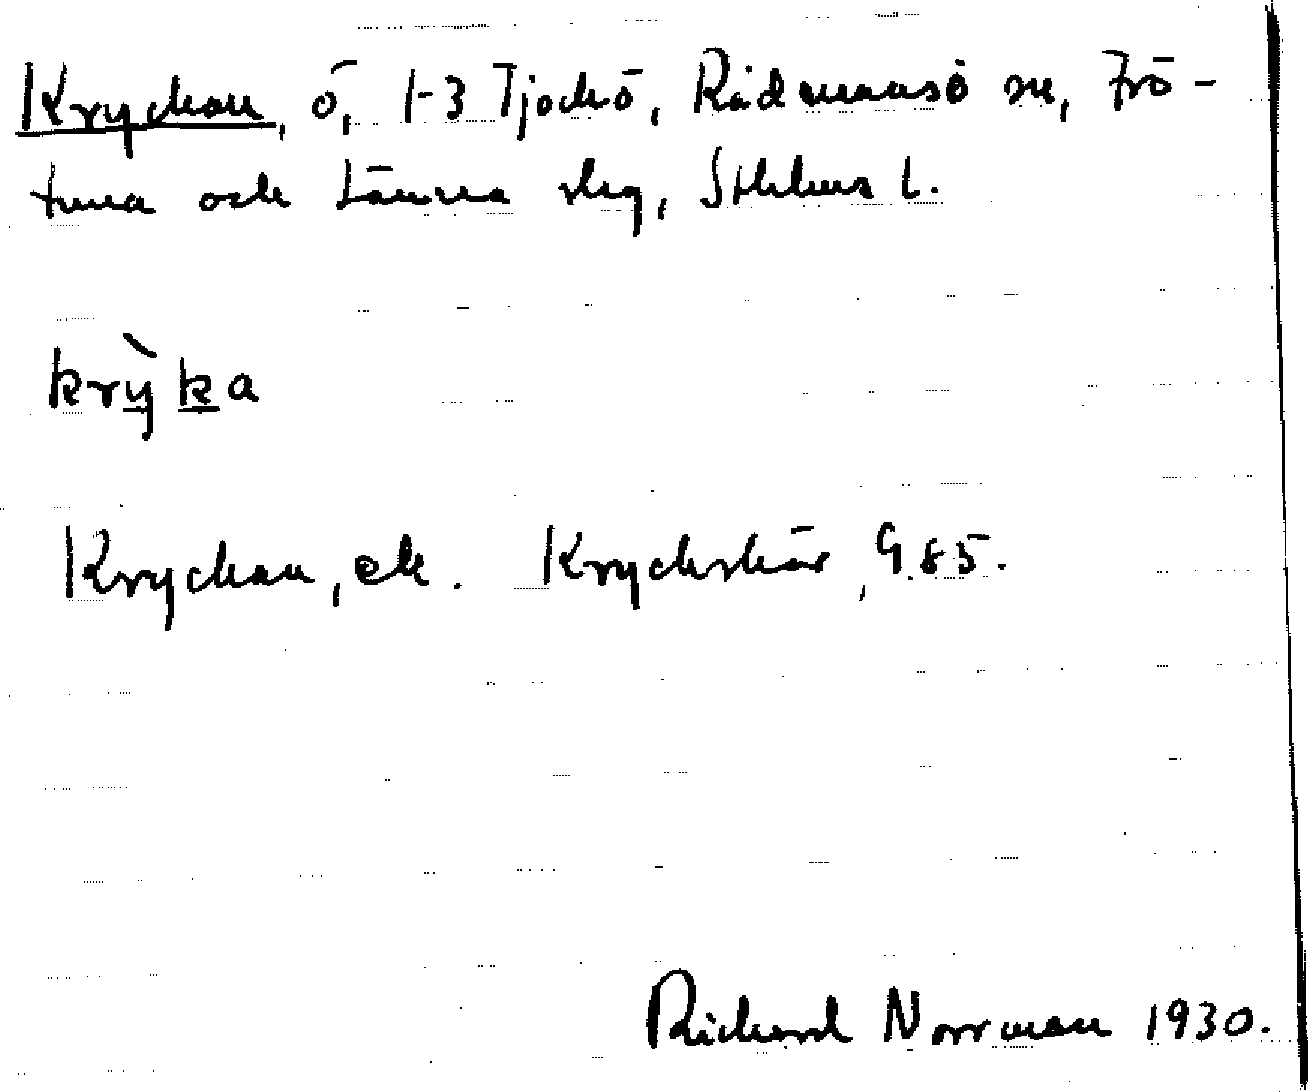 Kryckan, ö, 1-3 Tjockö, Rådmansö sn, Frö-
tuna och Länna slg, Sthlms l.
krỳka
Kryckan, ek. Kryckskär, G.85.
Richard Norrman 1930.